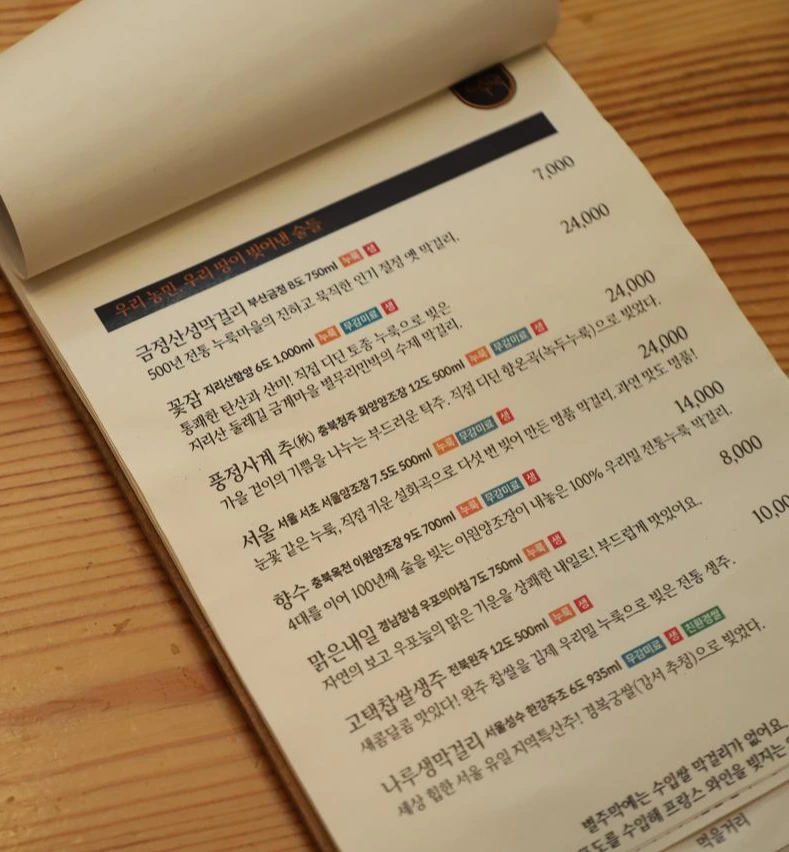 우리 농민, 우리 땅이 빚어낸 술들
금정산성막걸리 부산금정 8도 750ml 누룩 생 7,000
500년 전통 누룩마을의 진하고 묵직한 인기 절정 옛 막걸리.
꽃잠 지리산함양 6도 1,000ml 누룩 무감미료 생 24,000
통쾌한 탄산과 산미! 직접 디딘 토종 누룩으로 빚은
지리산 둘레길 금계마을 별무리민박의 수제 막걸리.
풍정사계 추(秋) 충북청주 화양양조장 12도 500ml 누룩 무감미료 생 24,000
가을 걷이의 기쁨을 나누는 부드러운 탁주. 직접 디딘 향온곡(녹두누룩)으로 빚었다.
서울 서울 서초 서울양조장 7.5도 500ml 누룩 무감미료 생 24,000
눈꽃 같은 누룩, 직접 키운 설화곡으로 다섯 번 빚어 만든 명품 막걸리. 과연 맛도 명품!
향수 충북옥천 이원양조장 9도 700ml 누룩 무감미료 생 14,000
4대를 이어 100년째 술을 빚는 이원양조장이 내놓은 100% 우리밀 전통누룩 막걸리.
맑은내일 경남창녕 우포의아침 7도 750ml 누룩 생 8,000
자연의 보고 우포늪의 맑은 기운을 상쾌한 내일로! 부드럽게 맛있어요.
고택찹쌀생주 전북완주 12도 500ml 누룩 생 10,00
새콤달콤 맛있다! 완주 찹쌀을 김제 우리밀 누룩으로 빚은 전통 생주.
나루생막걸리 서울성수 한강주조 6도 935ml 무감미료 생 친환경쌀
세상 힙한 서울 유일 지역특산주! 경복궁쌀(강서 추청)으로 빚었다.
별주막에는 수입쌀 막걸리가 없어요.
포도를 수입해 프랑스 와인을 빚지는
먹을거리